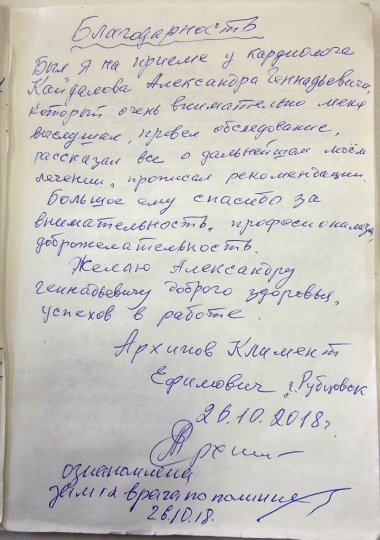 Благодарность
Был я на приеме у кардиолога
Кайдалова Александра Геннадьевича,
который очень внимательно меня
выслушал, провел обследование,
рассказал все о дальнейшем моём
лечении, прописал рекомендации.
Большое ему спасибо за
внимательность, професионализм,
доброжелательность.
Желаю Александру
Геннадьевичу доброго здоровья,
успехов в работе.
Архипов Климент
Ефимович, г. Рубцовск
26.10.2018г.
Архип
ознакомлена
зам гл врача по поликлинике
26.10.18.